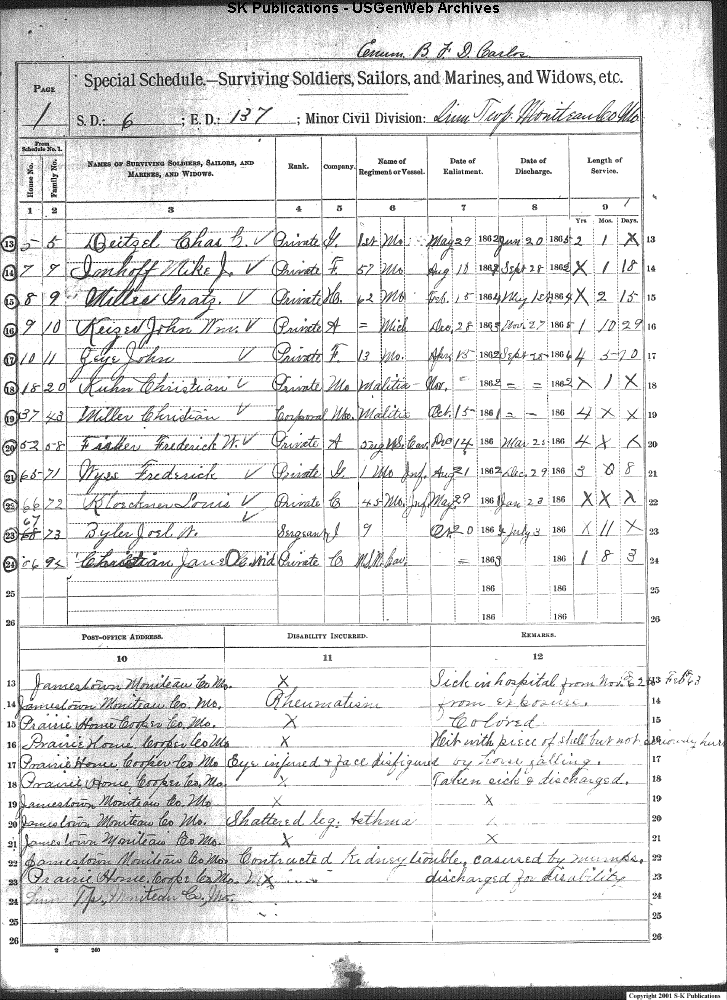 SK Publications - USGenWeb Archives
Enum. B. F. D. Carlos.
PAGE
1
Special Schedule.—Surviving Soldiers, Sailors, and Marines, and Widows, etc.
S. D.: 6 ; E. D.: 137 ; Minor Civil Division: Linn Twp. Moniteau Co Mo
From Schedule No. 1.
House No. Family No. NAMES OF SURVIVING SOLDIERS, SAILORS, AND MARINES, AND WIDOWS. Rank. Company. Name of Regiment or Vessel. Date of Enlistment. Date of Discharge. Length of Service.
1 2 3 4 5 6 7 8 9
Yrs Mos. Days.
13 5 5 Deitzel Chas Private 1st Mo May 29 1862 Jun 20 1865 2 1 X 13
14 7 7 Imhoff Mike J. Private F. 57 Mo Aug 10 1862 Sept 28 1862 X 1 18 14
15 8 9 Miller Gratz. Private 62 Mo Feb. 15 1864 May 1st 1864 X 2 15 15
16 9 10 Keizer John Wm. Private A = Mich Dec. 28 1863 Nov. 27 1865 1 10 29 16
17 10 11 Geye John Private F. 13 Mo. 1862 Sept 1864 4 17
18 18 20 Kuhn Christian Private Mo Malitia Nov. = 1862 = = 1862 X 1 X 18
19 37 43 Miller Christian Corporal Mo. Malitia Oct. 15 1861 = - 186 4 X X 19
20 52 58 Fisher Frederick W. Private A U.S. Cav. Dec 14 186 Mar 186 4 X X 20
21 65 71 Wyss Frederick Private 1 Mo Inf. Aug 21 1862 Dec. 29 186 3 0 8 21
22 66 72 Kloeckner Louis Private C 45 Mo. Inf May 29 1861 Jan 23 186 X X X 22
23 67 73 Byler Joel Sergeant 9 20 1862 July 3 186 X 11 X 23
24 Christian Jane Wid Private C M.S.M. Cav. = 1863 186 1 8 3 24
25 186 186 25
26 186 186 26
POST-OFFICE ADDRESS. DISABILITY INCURRED. REMARKS.
10 11 12
13 Jamestown Moniteau Co Mo. X Sick in hospital from Nov. 62 to Feb 63 13
14 Jamestown Moniteau Co. Mo. Rheumatism from exposure. 14
15 Prairie Home Cooper Co. Mo. X Colored 15
16 Prairie Home, Cooper Co Mo X Hit with piece of shell but not seriously hurt 16
17 Prairie Home Cooper Co. Mo Eye injured & face disfigured by horse falling. 17
18 Prairie Home, Cooper Co. Mo. X Taken sick & discharged. 18
19 Jamestown Moniteau Co. Mo X X 19
20 Jamestown Moniteau Co. Mo. Shattered leg. Asthma 20
21 Jamestown Moniteau Co Mo. X X 21
22 Jamestown Moniteau Co Mo. Contracted kidney trouble, casursed by mumps. 22
23 Prairie Home, Cooper Co. Mo. X discharged for disability 23
24 Linn Tp. Moniteau Co. Mo. 24
25 25
26 26
2 260
Copyright 2001 S-K Publications